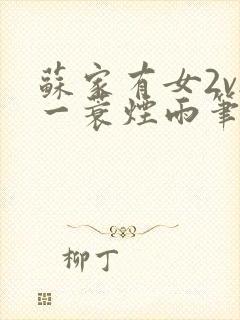 蘇家有女2v
一蓑煙雨筆
柳丁